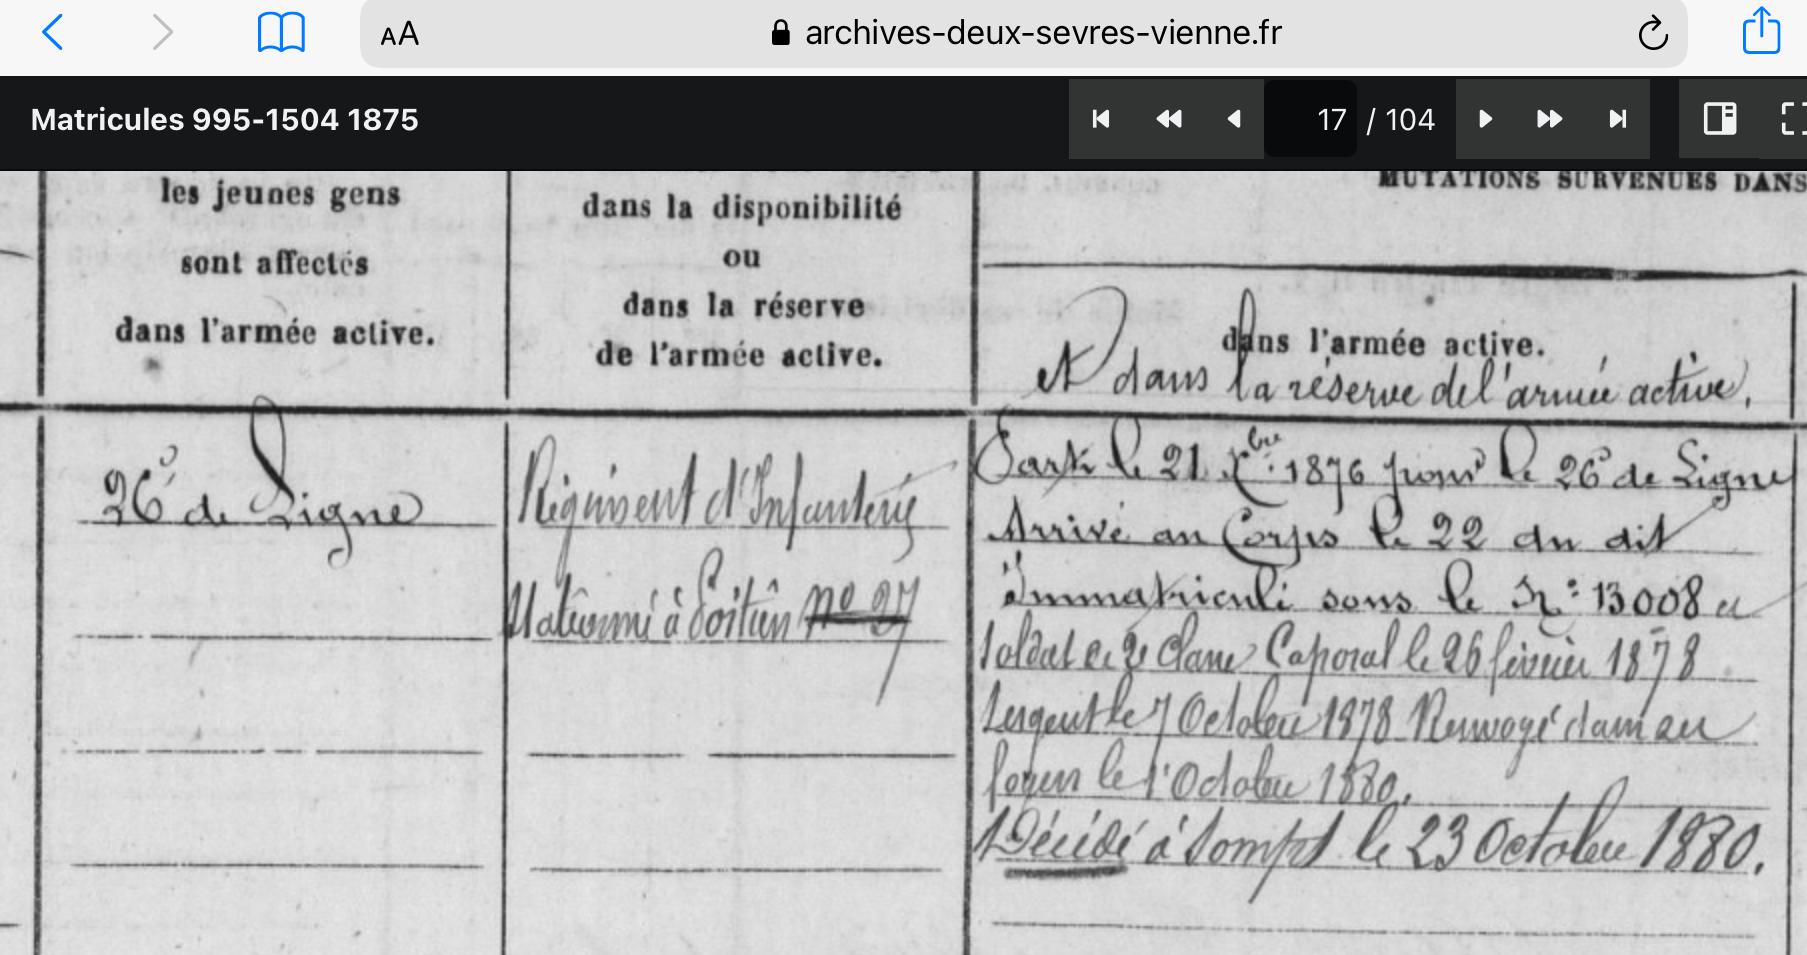 AA
archives-deux-sevres-vienne.fr
Matricules 995-1504 1875
17 / 104
les jeunes gens
sont affectés
dans l'armée active.
dans la disponibilité
ou
dans la réserve
de l'armée active.
MUTATIONS SURVENUES DANS
dans l'armée active.
et dans la réserve de l'armée active.
26e de Ligne
Régiment d'Infanterie
stationné à Poitiers no 27
Parti le 21 Xbre 1876 pour le 26e de Ligne
Arrivé au Corps le 22 du dit
Immatriculé sous le No: 13008 et
soldat de 2e Classe Caporal le 26 février 1878
Sergent le 7 Octobre 1878 Renvoyé dans ses
foyers le 1er Octobre 1880.
Décédé à Sompt le 23 Octobre 1880.